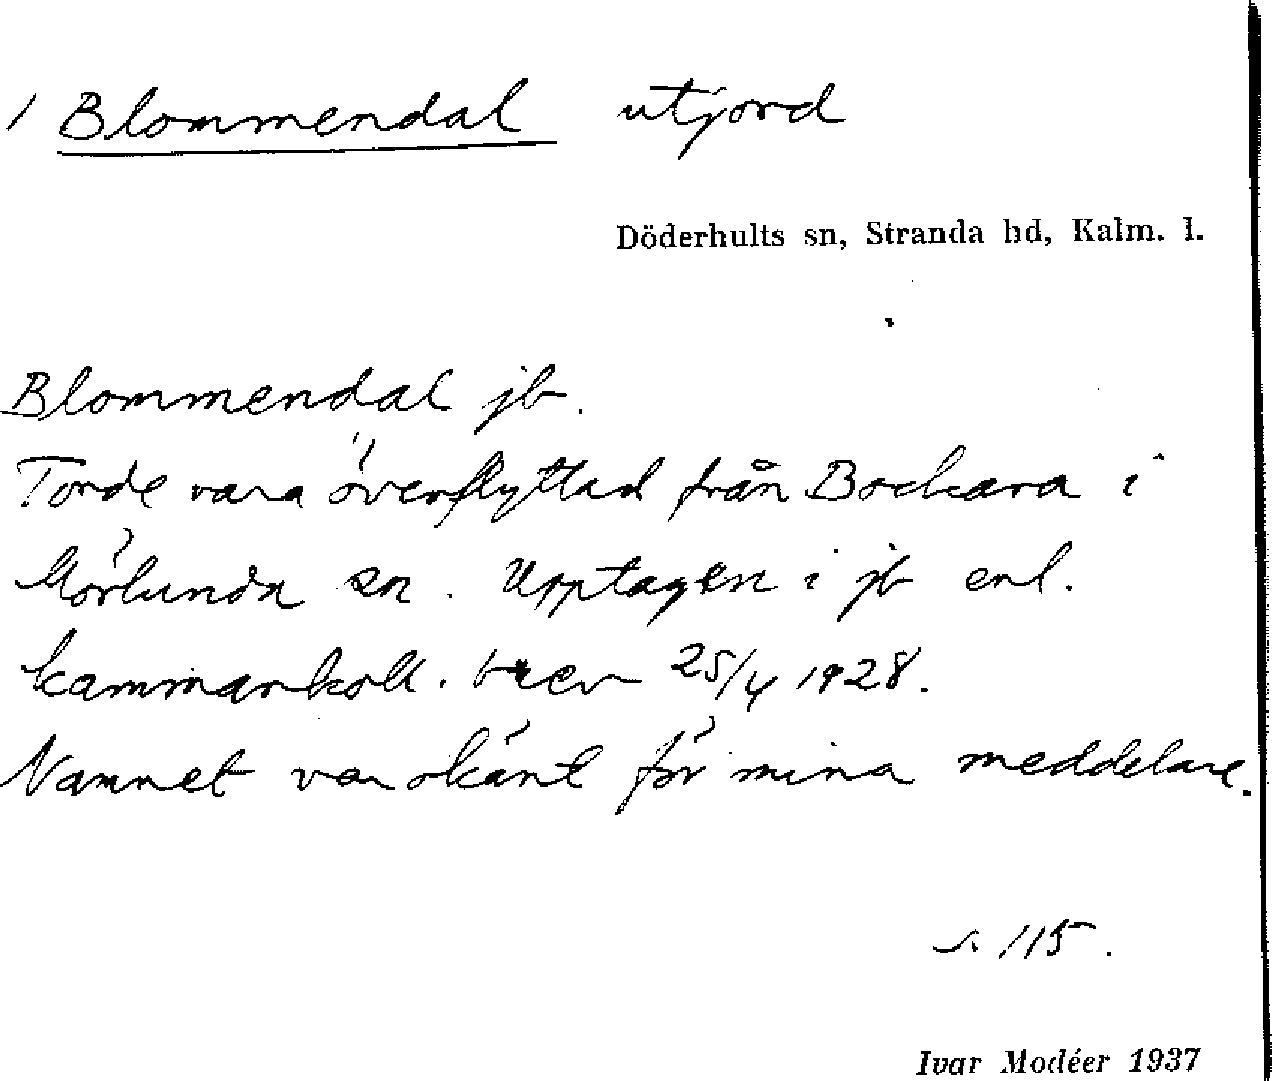 / Blommendal utjord
Döderhults sn, Stranda hd, Kalm. l.
Blommendal jb.
Torde vara överflyttad från Bockara i
Mörlunda sn. Upptagen i jb enl.
kammarkoll. brev 25/4 1928.
Namnet var okänt för mina meddelare.
s. 115.
Ivar Modéer 1937